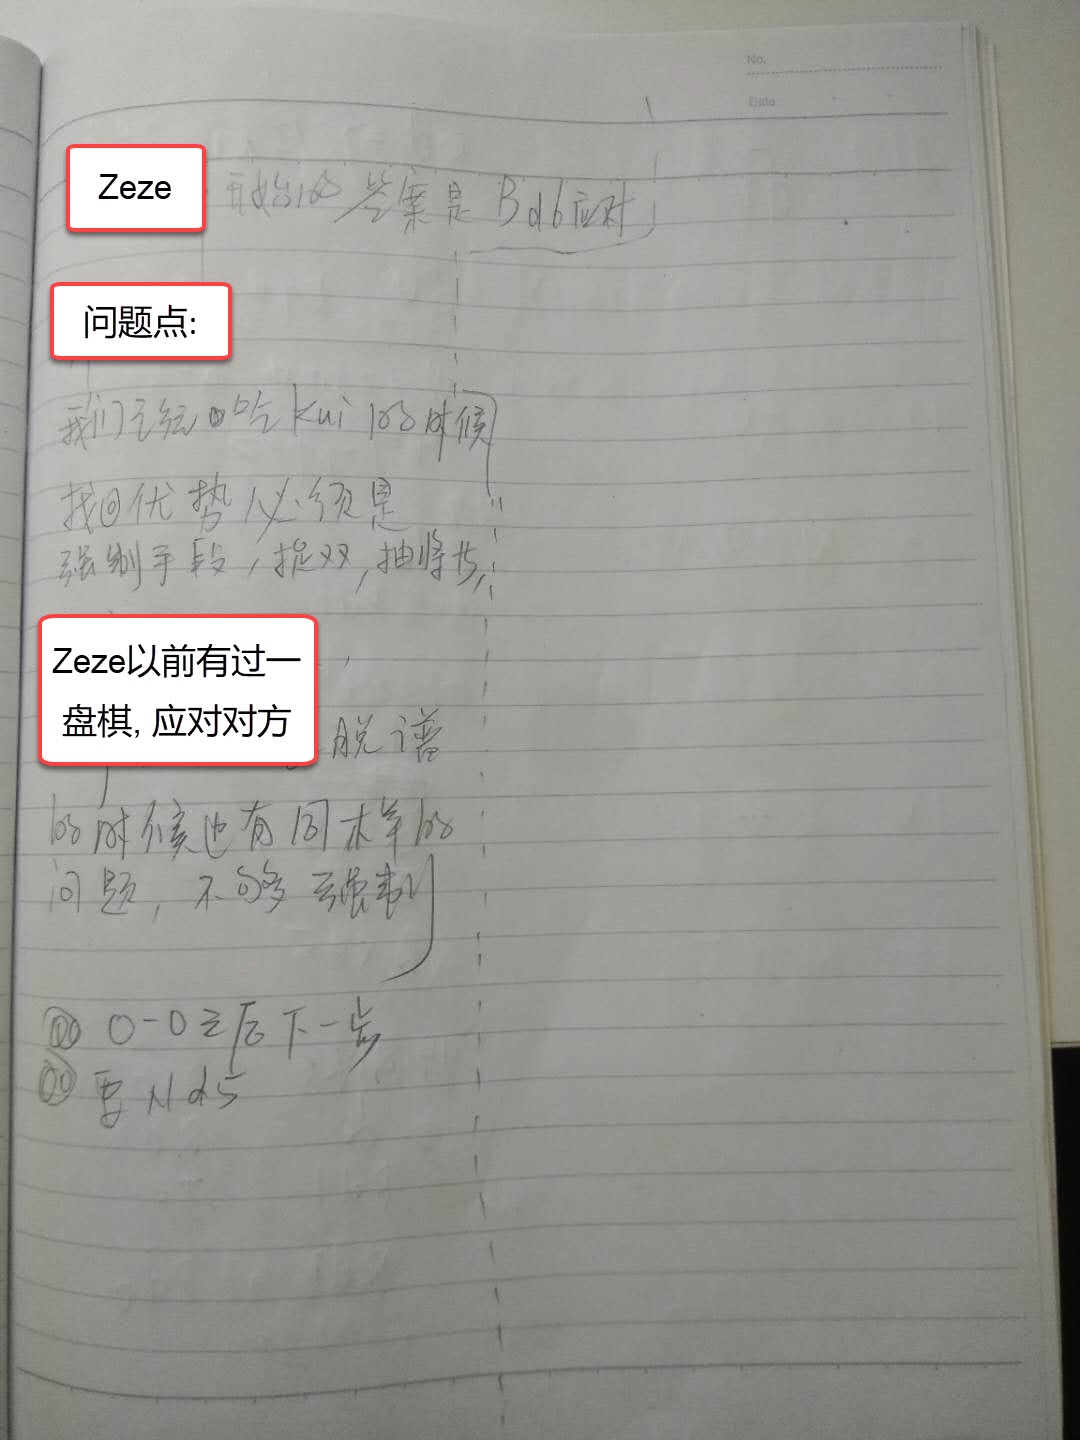 No.
Date
Zeze 开始的答案是 Bd6应对
问题点:
我们在吃kui的时候
找回优势必须是
强制手段, 捉双, 抽将步,
Zeze以前有过一
盘棋, 应对对方
脱谱
的时候也有同样的
问题, 不够强制
0-0之后下一步
要Nd5